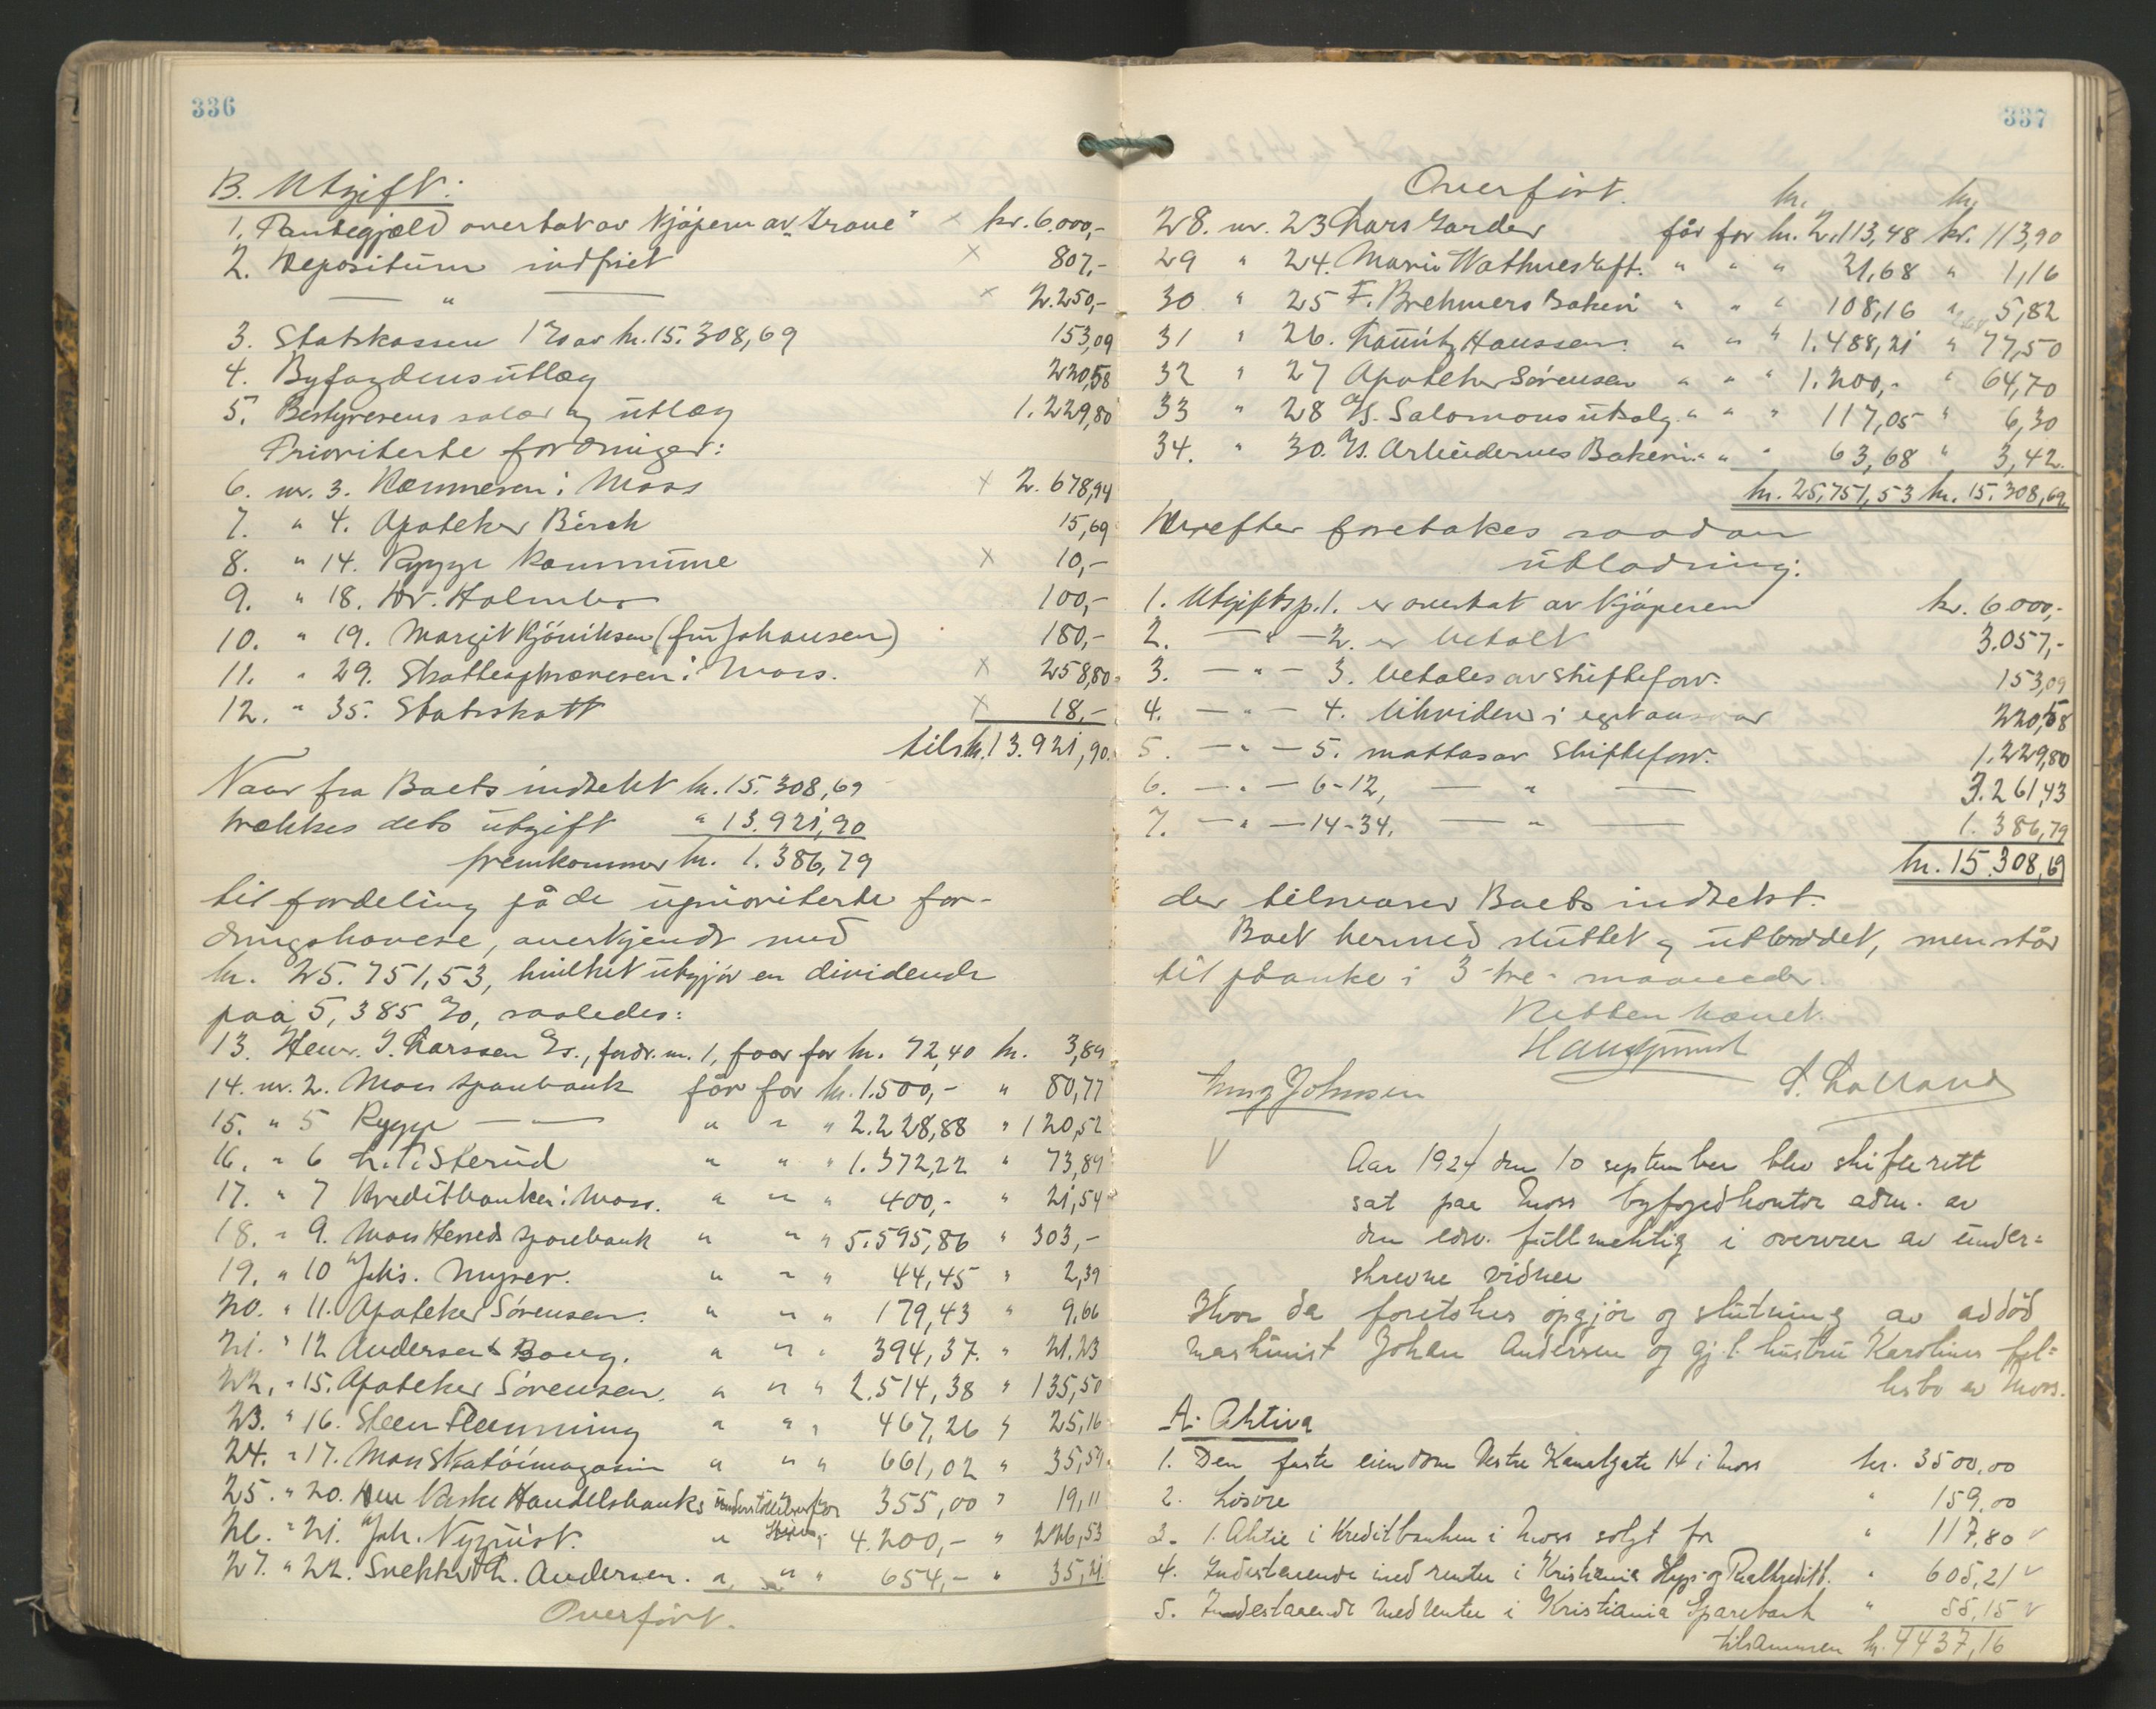 336
B. Utgift:
1. Pantegjæld overtat av kjøperen av "Trane" × kr. 6.000,-
2. Depositum indfriet × 807,-
— " — × 2.250,-
3. Statskassen 1 % av kr. 15.308,69 153,09
4. Byfogdens utlæg 220,58
5. Bestyrerens salær og utlæg 1.229,80
Prioriterte fordringer:
6. nr. 3. Kæmneren i Moss × 2.678,94
7. " 4. Apoteker Birch 15,69
8. " 14. Rygge kommune × 10,-
9. " 18. Dr. Holmbo 100,-
10. " 19. Margit Kjöniksen (fru Johansen) 180,-
11. " 29. Skatteopkræveren i Moss. × 258,80
12. " 35. Statsskatt × 18,-
tils. kr. 13.921,90.
Naar fra Boets indtekt kr. 15.308,69
trækkes dets utgift " 13.921,90
fremkommer kr. 1.386,79
til fordeling på de uprioriterte for-
dringshavere, anerkjendt med
kr. 25.751,53, hvilket utgjør en dividende
paa 5,385 %, saaledes:
13. Henr. J. Larssen A/s., fordr. nr. 1, faar for kr. 72,40 kr. 3,89
14. nr. 2. Moss Sparebank får for kr. 1.500,- " 80,77
15. " 5 Rygge — " — " " " 2.228,88 " 120,52
16. " 6 Sterud " " " 1.372,22 " 73,89
17. " 7 Kreditbanken i Moss. " " " 400,- " 21,54
18. " 9. Moss Herreds Sparebank " " " 5.595,86 " 303,-
19. " 10 Johs. Myrer. " " " 44,45 " 2,39
20. " 11. Apoteker Sørensen. " " " 179,43 " 9,66
21. " 12 Andersen & Boug. " " " 394,37. " 21.23
22. " 15. Apoteker Sørensen. " " " 2.514,38 " 135,50
23. " 16. Steen Flemming " " " 467,26 " 25,16
24. " 17. Moss Skotöimagasin " " " 661,02 " 35,59.
25. " 20. Den Norske Handelsbanks 355,00 " 19,11
26. " 21. Joh. Nyquist. " " 4.200,- " 226,53
27. " 22. Snekker Andersen. " " " 654,- " 35,21
Overført.
337
Overført. kr. kr.
28. nr. 23 Lars Garder får for kr. 2.113,48 kr. 113,90
29 " 24. Marie Wathnes Eft. " " " 21,68 " 1,16
30 " 25 F. Brehmers Bakeri " " " 108,16 " 5,82
31 " 26. Lauritz Hanssen. " " " 1.488,21 " 77,50
32 " 27 Apoteker Sørensen " " " 1.200,- " 64,70
33 " 28 A/S. Salomons utsalg " " " 117,05 " 6,30
34. " 30. A/s. Arbeidernes Bakeri " " " 63,68 " 3,42.
kr. 25,751,53 kr. 15.308,69
Derefter foretakes saadan
utlodning:
1. Utgiftsp. 1. er overtat av kjøperen kr. 6.000,-
2. — " — 2. er betalt 3.057,-
3. — " — 3. betales av Skifteforv. 153,09
4. — " — 4. likvideres i eget ansvar 220,58
5. — " — 5. mottas av Skifteforv. 1.229,80
6. — " — 6-12, — " — 3.261,43
7. — " — 14-34. — " — 1.386,79
kr. 15.308,69
der tilsvarer Boets indtekt.
Boet hermed sluttet og utloddet, men står
til påanke i 3 - tre - maaneder.
Retten hævet.
Johnsen
V Aar 1924 den 10 september blev skifterett
sat paa Moss byfogedkontor adm. av
den edsv. fullmektig i overvær av under=
skrevne vidner
Hvor da foretokes opgjör og slutning av avdöd
maskinist Johan Andersen og gj.l. hustru Karolines fel=
lesbo av Moss.
A. Aktiva
1. Den faste eiendom Vestre Kanalgate 14 i Moss kr. 3500,00
2. Lösöre " 159.00
3. 1. Aktie i Kreditbanken i Moss solgt for " 117,80 v
4. Indestaaende med renter i Kristiania Hyp- og Realkreditb. " 605,21 v
5. Indestaaende med renter i Kristiania Sparebank " 55,15 v
tilsammen kr. 4437,16